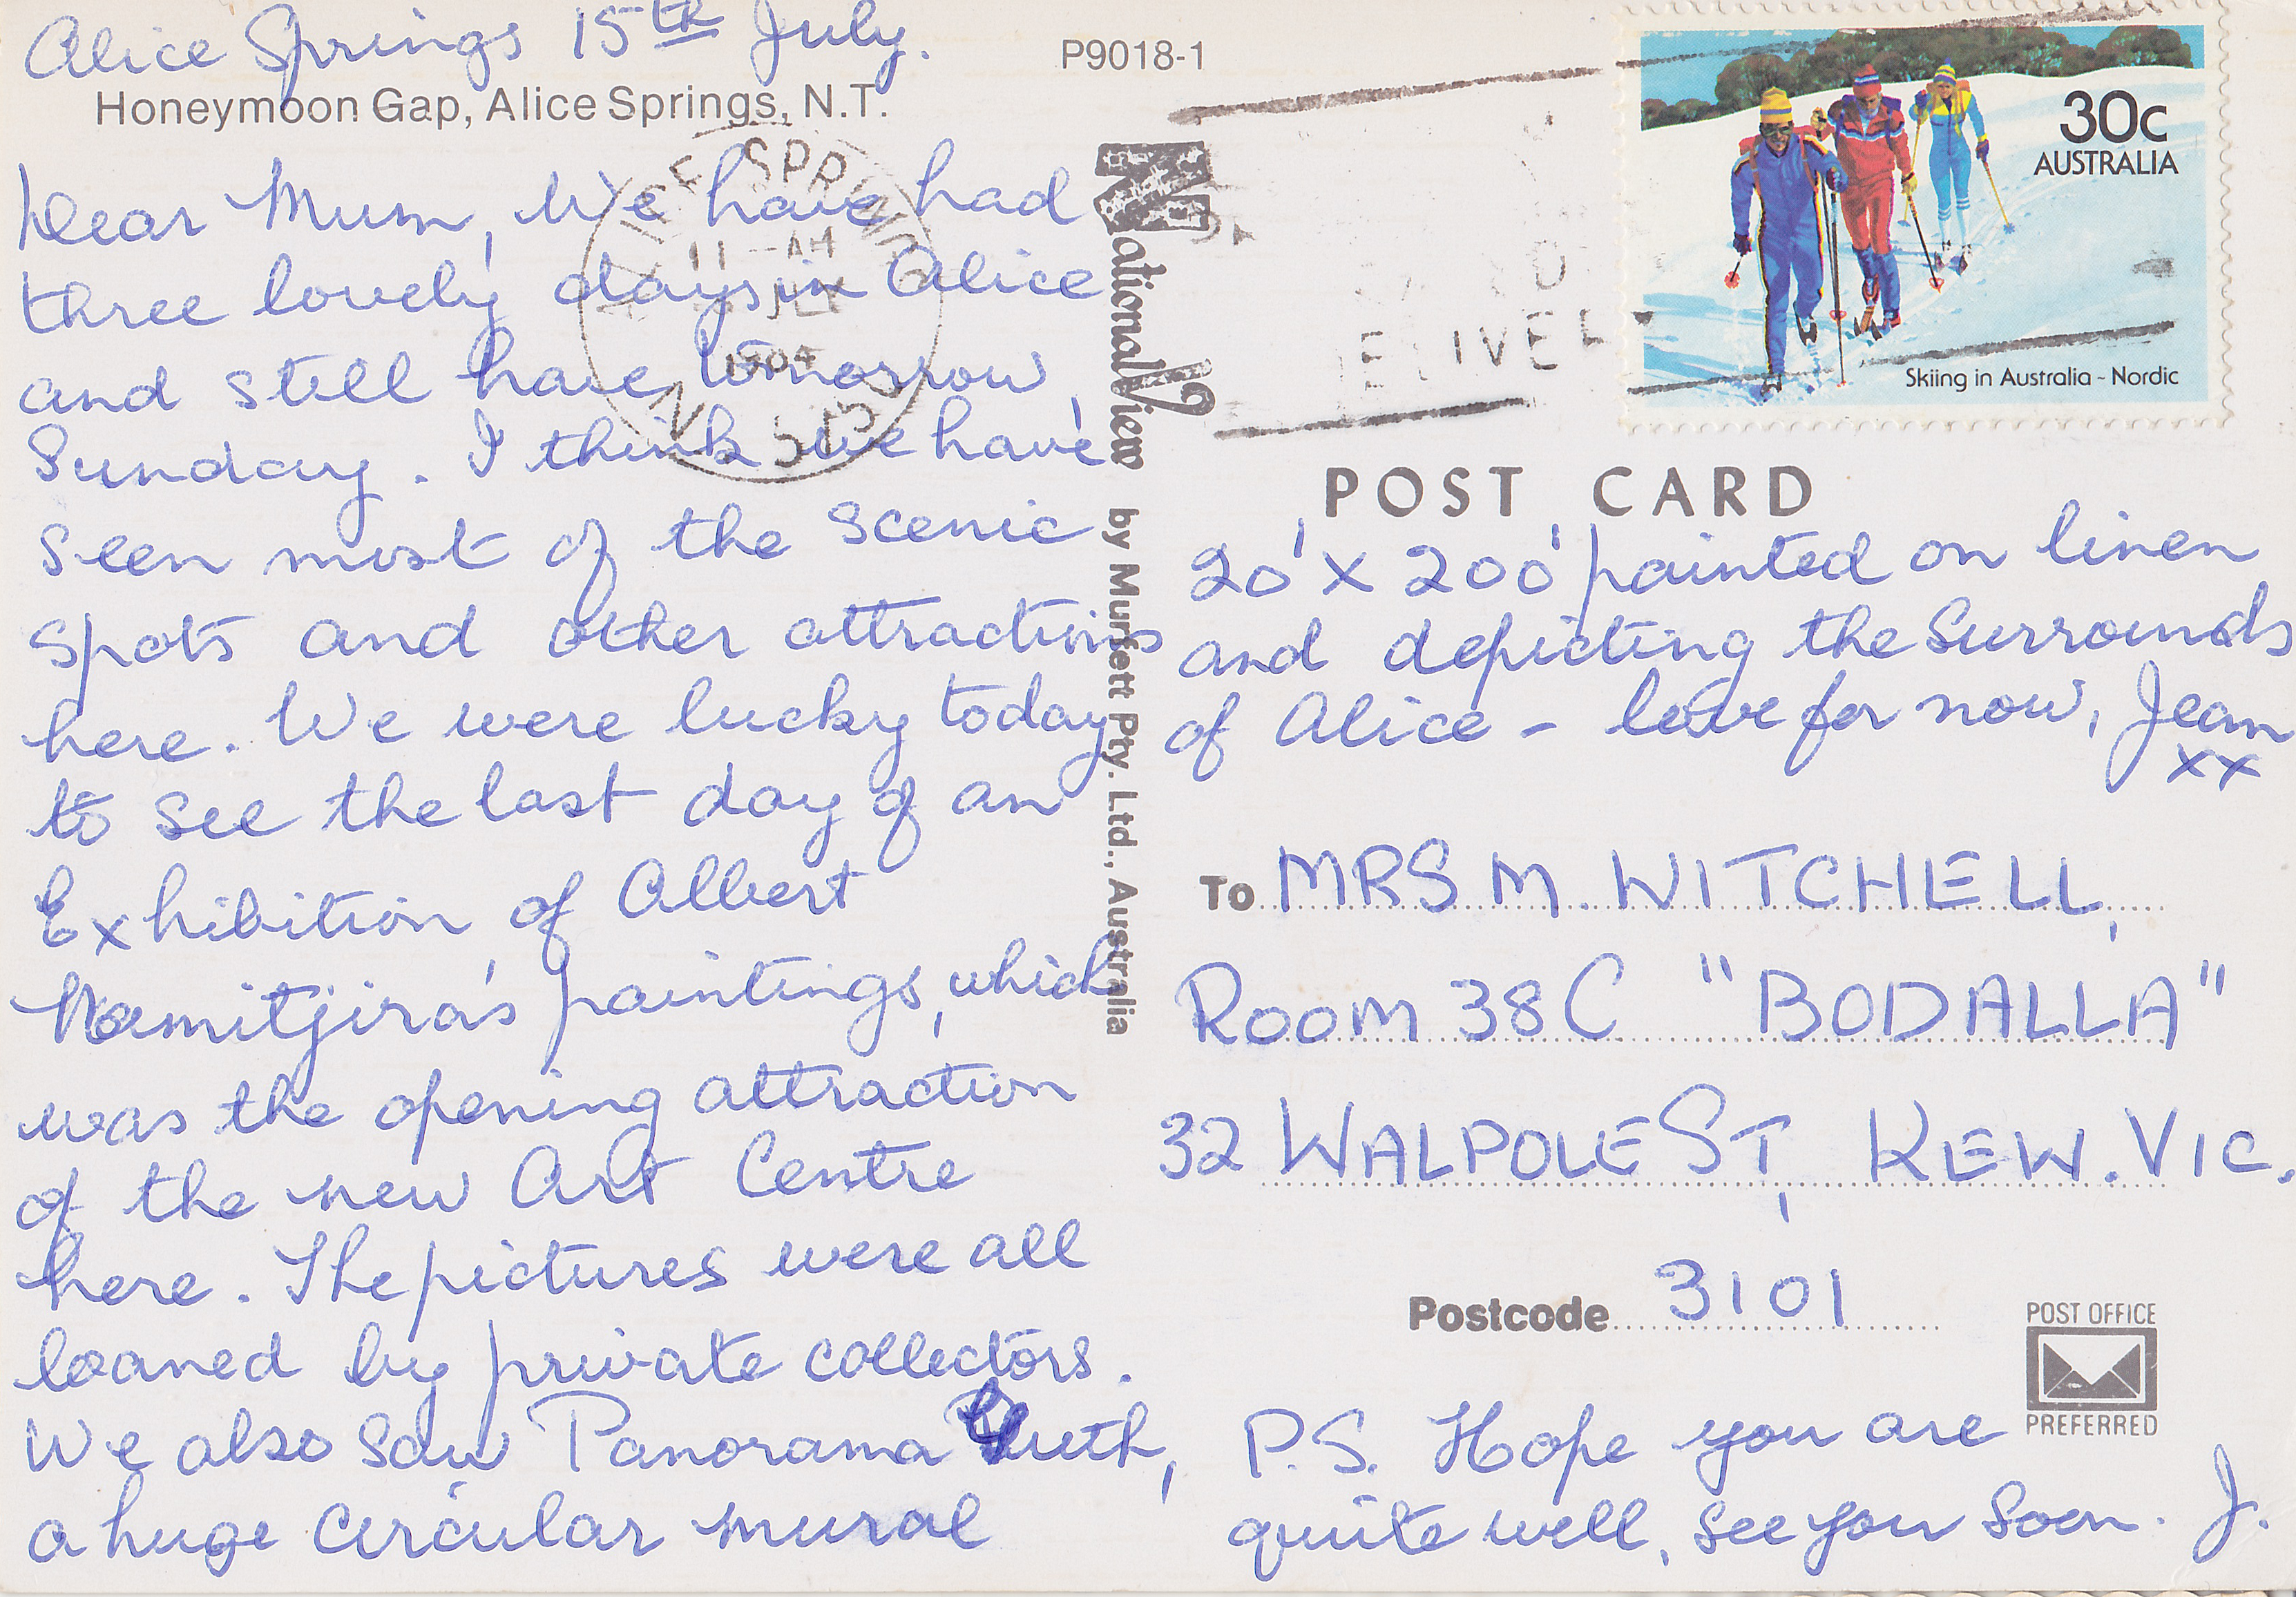 Alice Springs 15th July.
Honeymoon Gap, Alice Springs, N.T.
Dear Mum, We have had
three lovely days in Alice
and still have tomorrow,
Sunday. I think we have
seen most of the scenic
spots and other attractions
here. We were lucky today
to see the last day of an
Exhibition of Albert
Namitjira's paintings, which
was the opening attraction
of the new Art Centre
here. The pictures were all
loaned by private collectors.
We also saw Panorama Guth,
a huge circular mural
P9018-1
ALICE SPRINGS
11-AM
JLY
1984
N.T. 5750
NationalView by Murfett Pty. Ltd., Australia
30c
AUSTRALIA
Skiing in Australia - Nordic
POST CARD
20' x 200' painted on linen
and depicting the surrounds
of Alice - love for now, Jean
xx
To MRS M. WITCHELL,
ROOM 38C "BODALLA"
32 WALPOLE ST, KEW. VIC.
Postcode 3101
POST OFFICE
PREFERRED
P.S. Hope you are
quite well, see you soon. J.